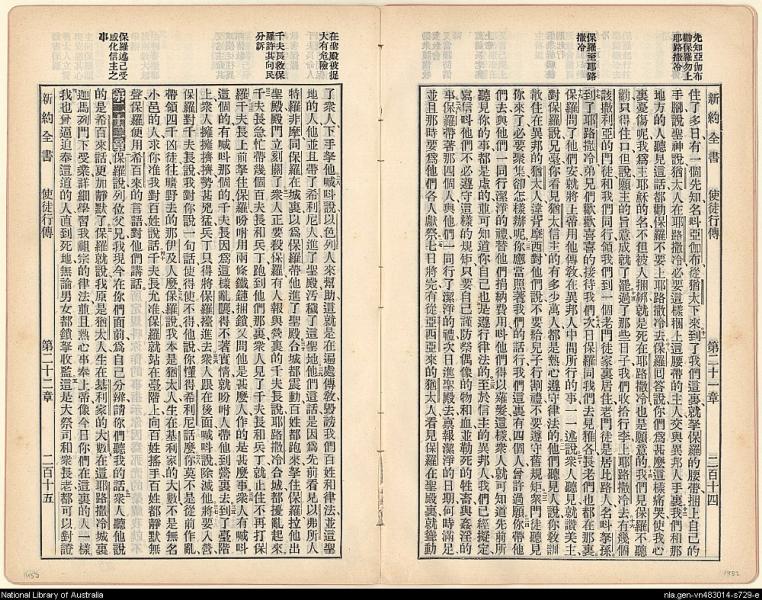 先知亞伽布
勸保羅勿上
耶路撒冷
保羅至耶路
撒冷
新約全書 使徒行傳 第二十一章 二百十四
住了多日有一個先知名叫亞伽布從猶太下來到了我們這裏就拏保羅的腰帶捆上自己的
手腳說聖神說猶太人在耶路撒冷必要這樣捆上這腰帶的主人交與異邦人手裏我們和那
地方的人聽見這話都勸保羅不要上耶路撒冷去保羅回答說你們爲甚麼這樣痛哭使我心
裏憂傷呢我爲主耶穌的名不但被人捆綁就是死在耶路撒冷也是願意的我們見保羅不聽
勸只得住口但說願主的旨意成就了罷過了那些日子我們收拾行李上耶路撒冷去有幾個
該撒利亞的門徒和我們同行領我們到一個老門徒家裏居住老門徒是居比路人名叫拏孫
到了耶路撒冷弟兄們歡歡喜喜的接待我們次日保羅同我們去見雅各長老們也都在那裏
保羅問了他們安就將上帝用他傳教在異邦人中間所行的事一一述說衆人聽見就讚美主
對保羅說兄臺你看見猶太人信主的有多少萬人都是熱心遵守律法的他們聽見人說你敎訓
散住在異邦的猶太人違背摩西對他們說不要給兒子行割禮不要遵守舊規矩衆門徒聽見
你來了必要聚集卻怎樣辦呢你應當照著我們的話行我們這裏有四個人曾許過願你帶他
們去與他們一同行潔淨的禮替他們捐納費用叫他們得以薙髮這樣衆人就可知道先前所
聽見你的事都是虛的並可知道你自己也是遵行律法的至於信主的異邦人我們已經擬定
寫信叫他們不必遵守這樣的規矩只要自己謹防祭偶像的物和血並勒死的牲畜與姦淫的
事保羅帶著那四個人與他們一同行了潔淨的禮次日進聖殿去禀報潔淨的日期何時滿足
並且那時要爲他們各人獻祭七日將完有從亞西亞來的猶太人看見保羅在聖殿裏就聳動
在聖殿被捉
大有危險
千夫長救保
羅許其向民
分訴
保羅述己受
感化信主之
事
了衆人下手拏他喊叫說以色列人來幫助這就是在遍處傳敎毁謗我們百姓和律法並這聖
地的人他並且帶了希利尼人進了聖殿汚穢了這聖地他們這話是因爲先前看見以弗所人
特羅非摩同保羅在城裏以爲保羅帶他進了聖殿合城都震動百姓都跑來拏住保羅拉他出
聖殿殿門立刻關了衆人正要殺保羅有人報與營裏的千夫長說耶路撒冷合城都擾亂起來
千夫長急忙帶幾個百夫長和兵丁跑到他們那裏衆人見了千夫長和兵丁就止住不再打保
羅千夫長上前拏住保羅吩咐用兩條鐵鏈捆鎖又問他是甚麼人作的是甚麼事衆人有喊叫
這個的有喊叫那個的千夫長因爲這樣亂嚷得不著實情就吩咐人帶他到營裏去到了臺階
上衆人擁擁擠擠勢甚兇猛兵丁只得將保羅擡進去衆人跟在後面喊叫說除滅他將要入營
保羅對千夫長說我對你說一句話使得使不得他說你懂得希利尼話麼你莫不是從前作亂
帶領四千凶徒往曠野去的那伊及人麼保羅說我本是猶太人生在基利家的大數不是無名
小邑的人求你准我對百姓說話千夫長允准保羅就站在臺階上向百姓搖手百姓都靜默無
聲保羅便用希百來的言語對他們講話
第二十二章保羅說列位父兄我現今在你們面前爲自己分辯請你們聽我的話衆人聽他說
的是希百來話更加靜默了保羅就說我原是猶太人生在基利家的大數在這耶路撒冷城裏
迦馬列門下受業詳細學習我祖宗的律法並且熱心事奉上帝像今日你們在這裏的人一樣
我也曾逼迫奉這道的人直到死地無論男女都鎖拏收監這是大祭司和衆長老都可以對證
新約全書 使徒行傳 第二十二章 二百十五
National Library of Australia
nla.gen-vn483014-s729-e